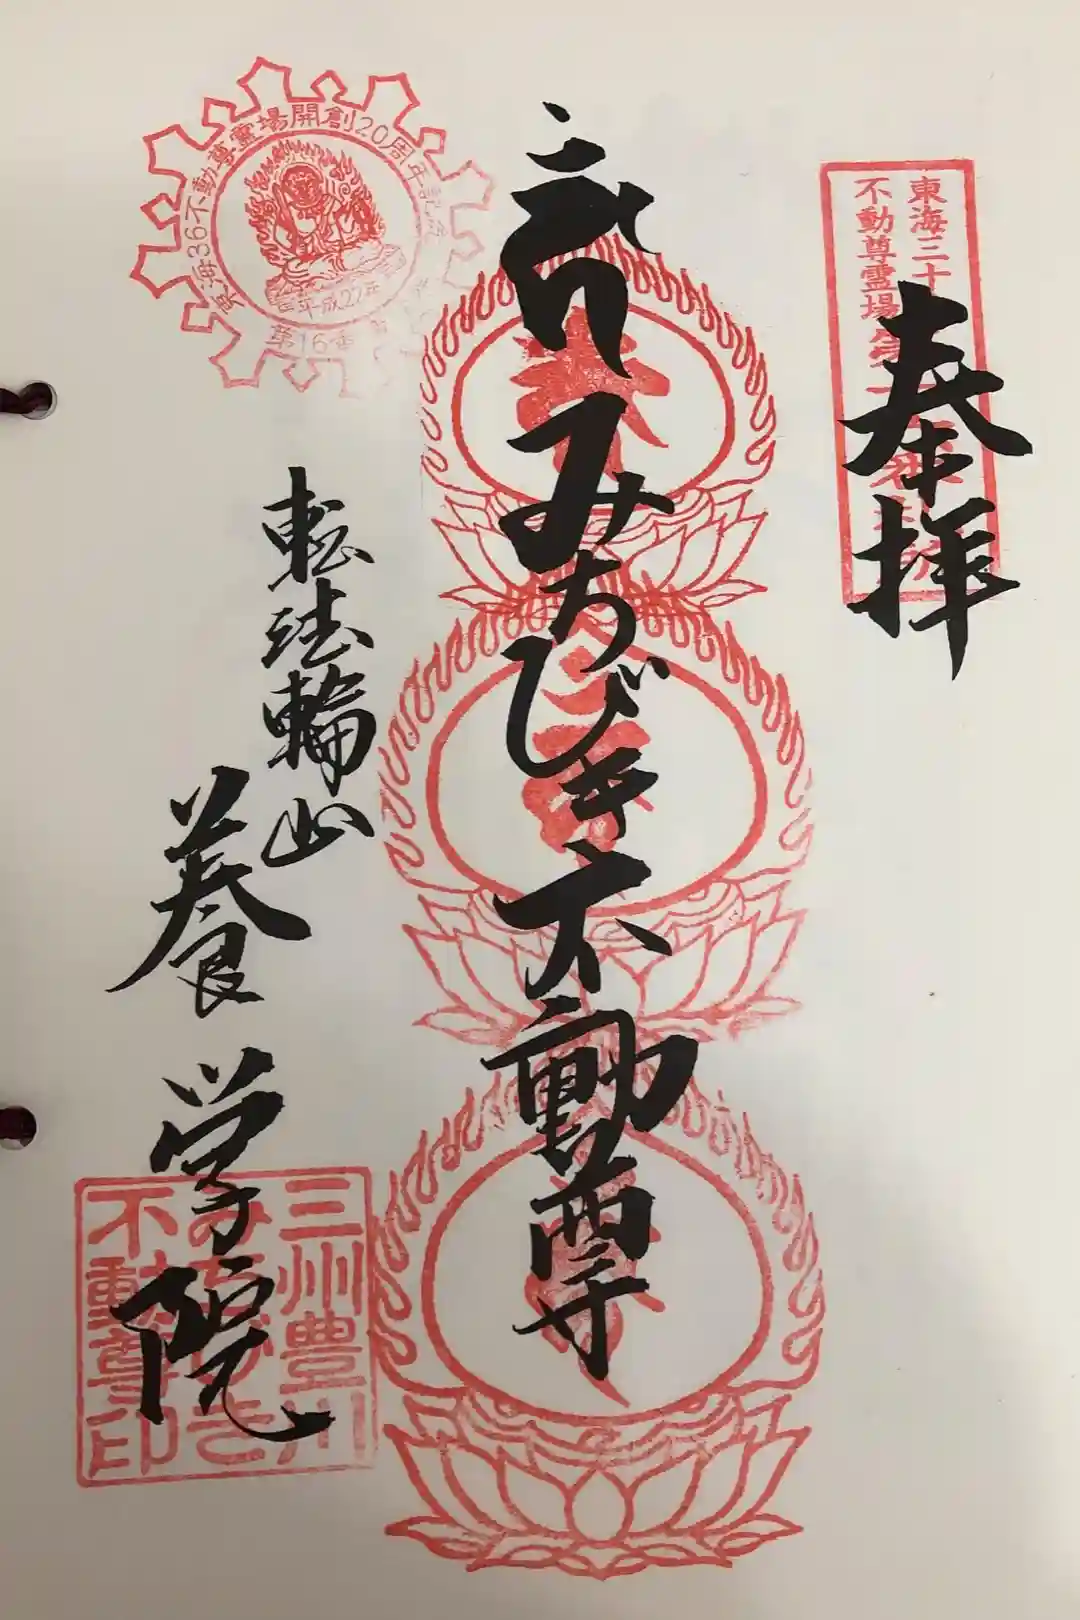 東海三十
不動尊霊場
奉拝
みちびき不動尊
東海36不動尊霊場開創20周年記念
平成22年
第16番
転法輪山
養学院
三州豊川
みちびき
不動尊印